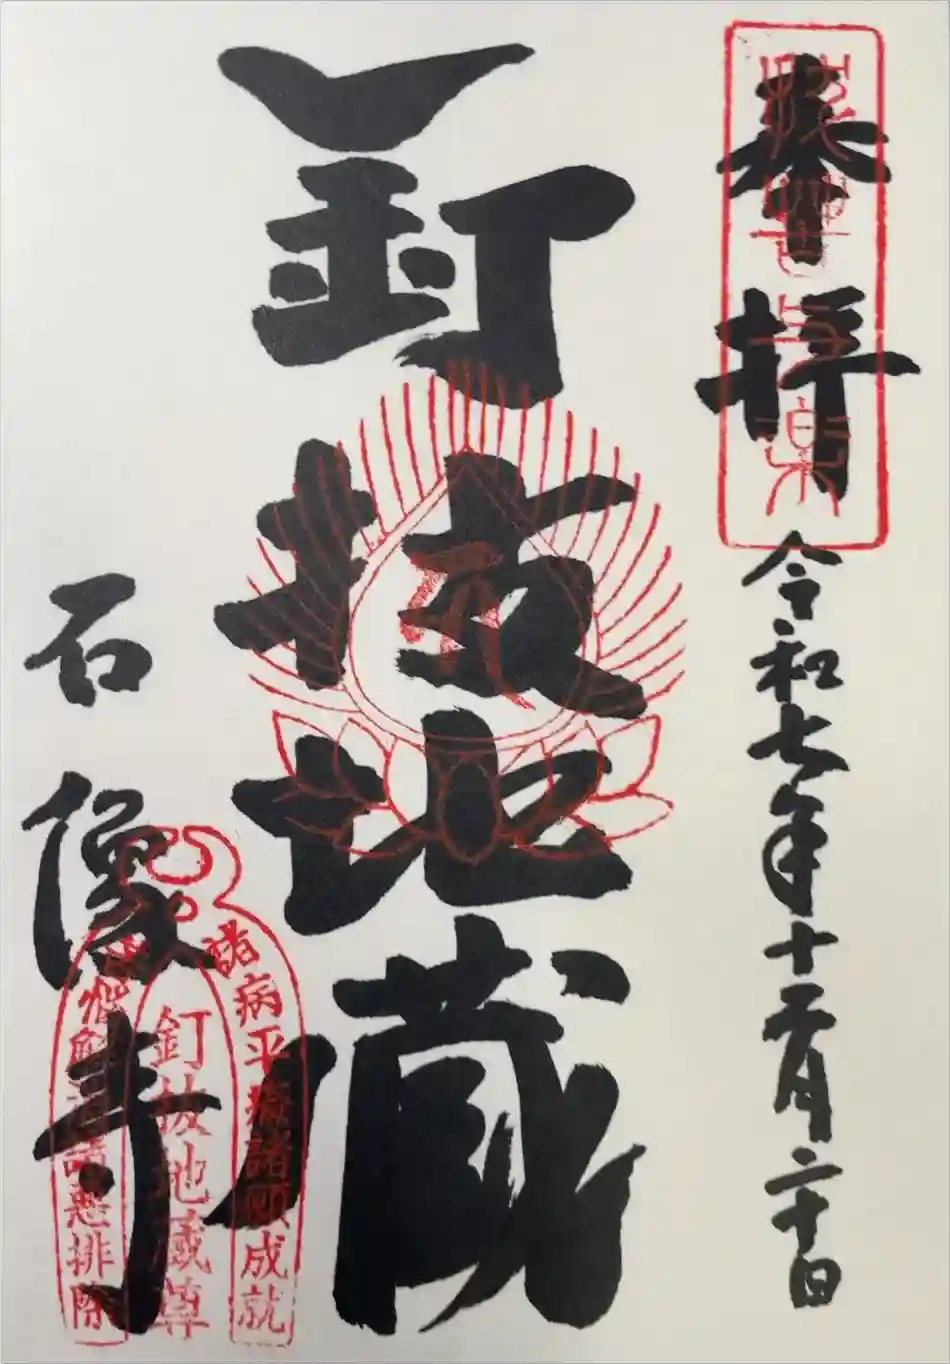 奉拝
拔苦与樂
令和七年十二月二十日
釘抜地蔵
石像寺
諸病平癒諸願成就
釘抜地蔵尊
諸悩解消諸悪排除